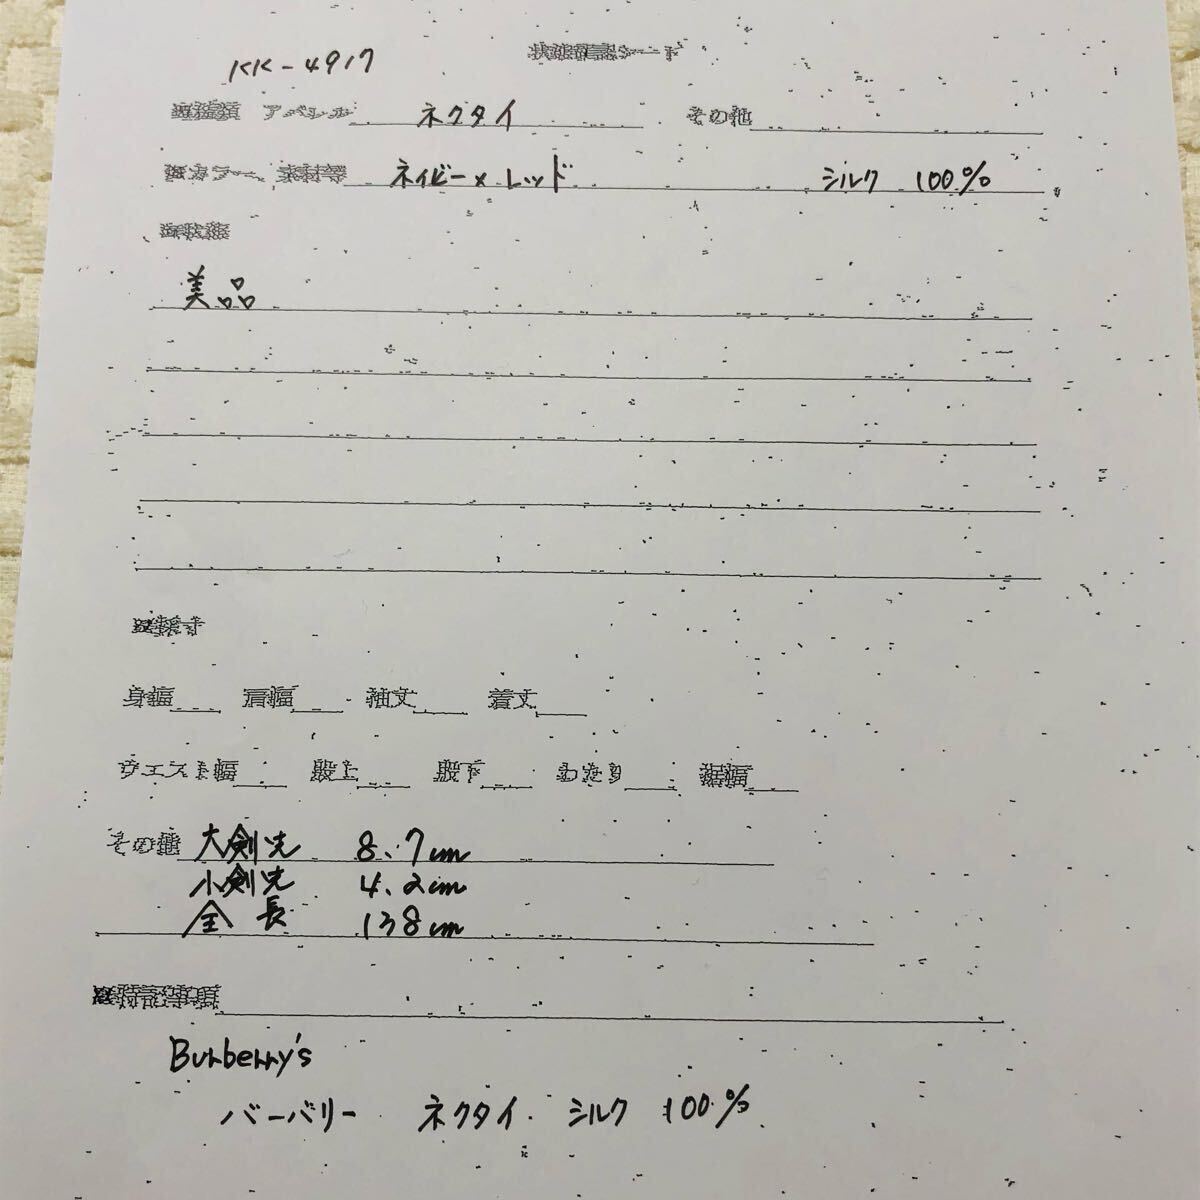 KK-4917
状態確認シート
※種類 アパレル ネクタイ その他
※カラー、素材等 ネイビー×レッド シルク 100%
※状態
美品
※採寸
身幅 肩幅 袖丈 着丈
ウエスト幅 股上 股下 わたり 裾幅
その他 大剣先 8.7cm
小剣先 4.2cm
全長 138cm
※特記事項
Burberry's
バーバリー ネクタイ シルク 100%